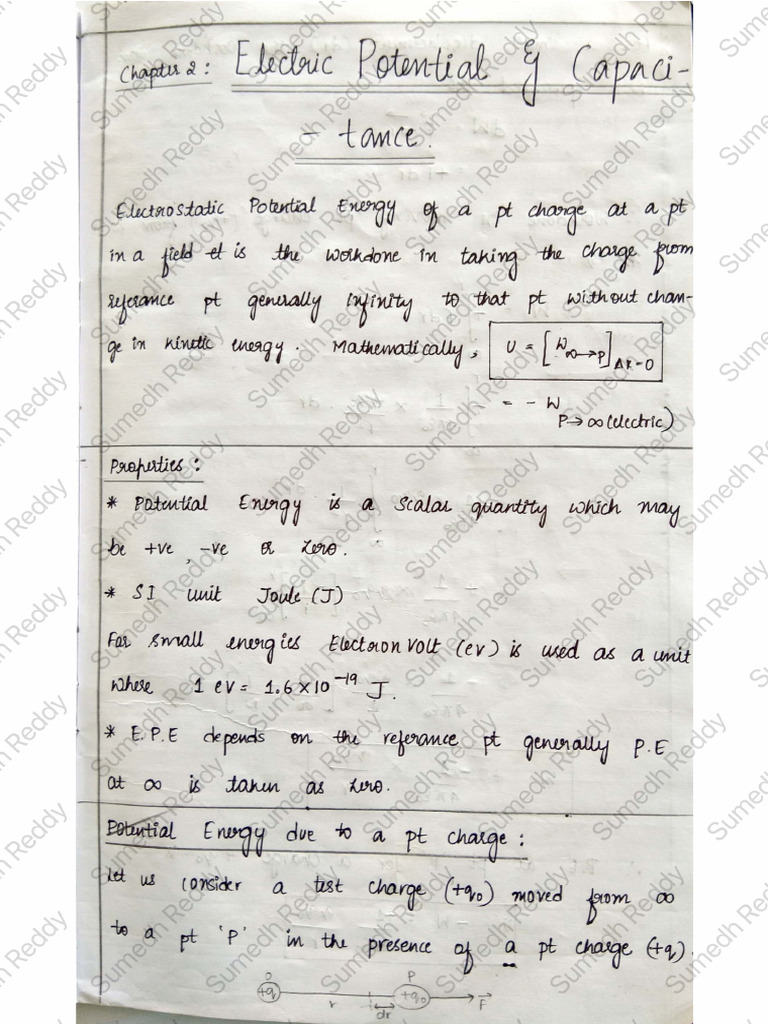 Chapter 2: Electric Potential & Capaci-
- tance.
Electrostatic Potential Energy of a pt charge at a pt
in a field is the workdone in taking the charge from
referance pt generally infinity to that pt without chan-
ge in kinetic energy. Mathematically, U = [W∞→P]ΔK=0
= - W P→∞(electric)
Properties:
* Potential Energy is a scalar quantity which may
be +ve, -ve or zero.
* SI unit Joule (J)
For small energies Electron Volt (ev) is used as a unit
where 1 ev = 1.6×10⁻¹⁹ J.
* E.P.E depends on the referance pt generally P.E
at ∞ is taken as zero.
Potential Energy due to a pt charge:
Let us consider a test charge (+q₀) moved from ∞
to a pt 'P' in the presence of a pt charge (+q).
O P
+q +q₀ F⃗
r dr
Sumedh Reddy